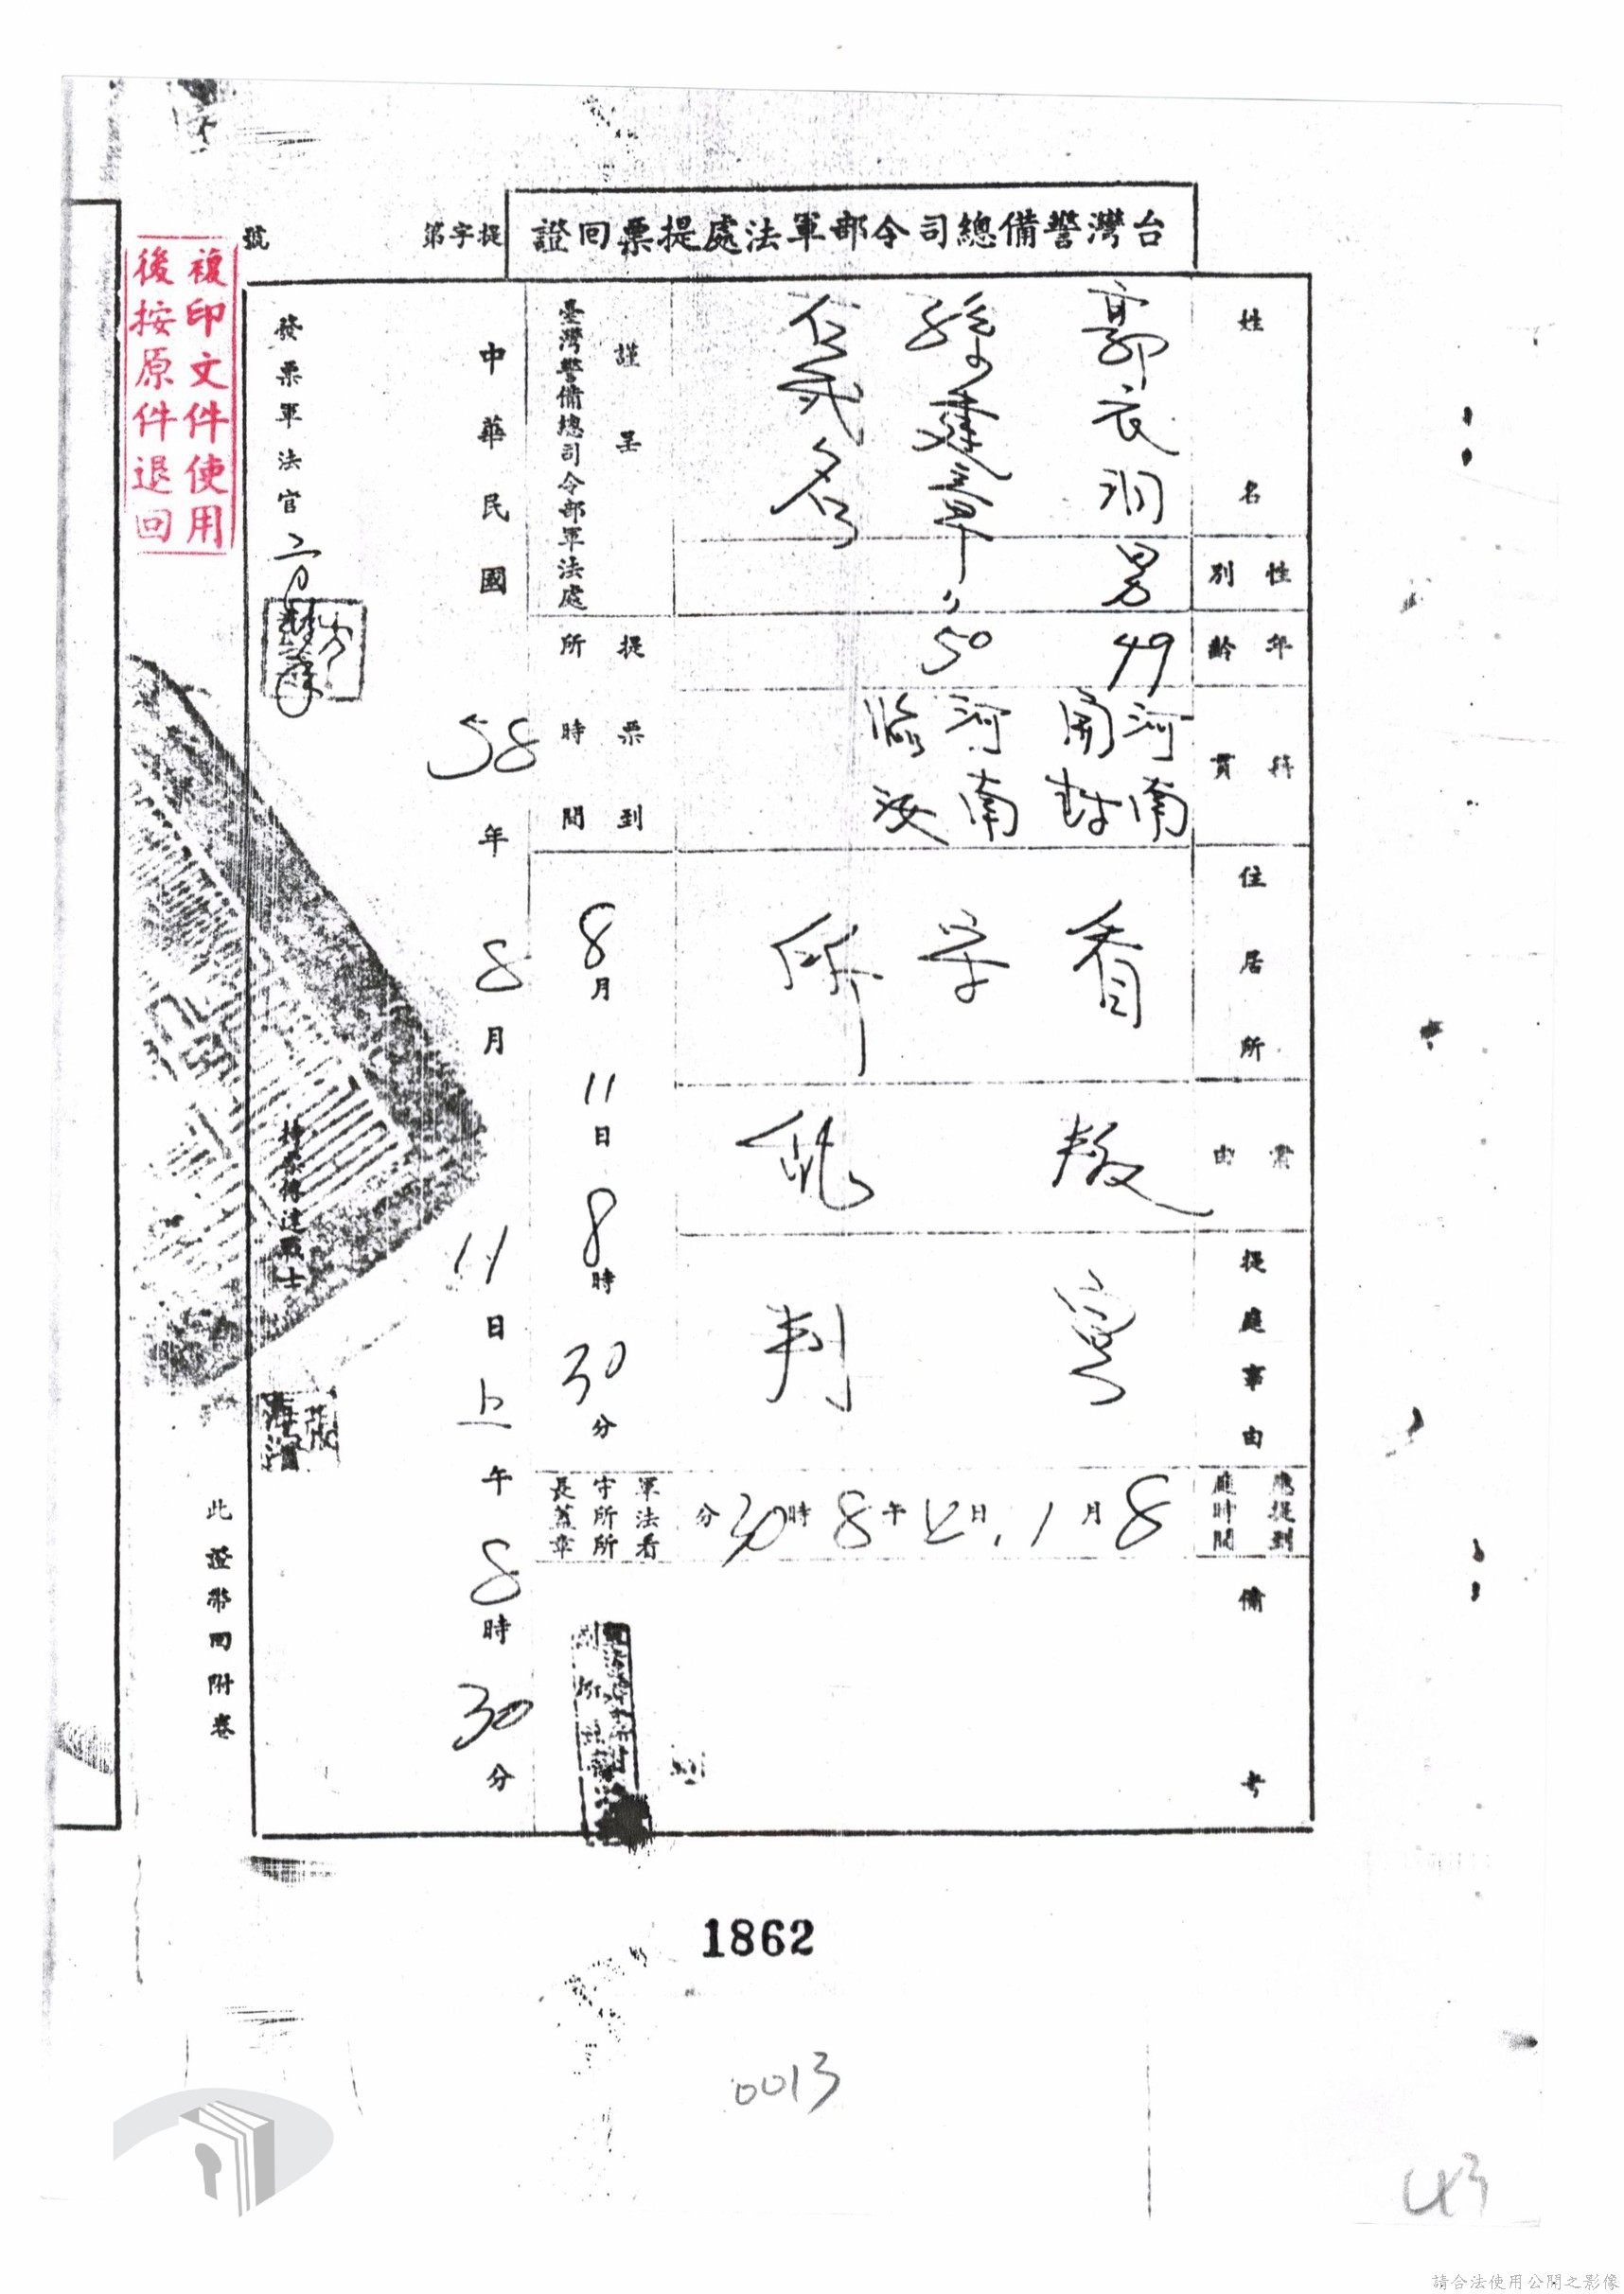 台灣警備總司令部軍法處提票回證
提字第
號
姓名
郭衣洞
孫建章
等貳名
性別
男
〃
年齡
49
50
籍貫
河南
開封
河南
臨汝
住居所
看守所
案由
叛亂
提庭事由
宣判
應提到
庭時間
8月11日上午8時30分
備考
謹呈
臺灣警備總司令部軍法處
提票到
所時間
8月11日8時30分
軍法看
守所所
長蓋章
中華民國58年8月11日上午8時30分
發票軍法官
持票傳達戰士
此證帶回附卷
複印文件使用
後按原件退回
1862
0013
43
請合法使用公開之影像